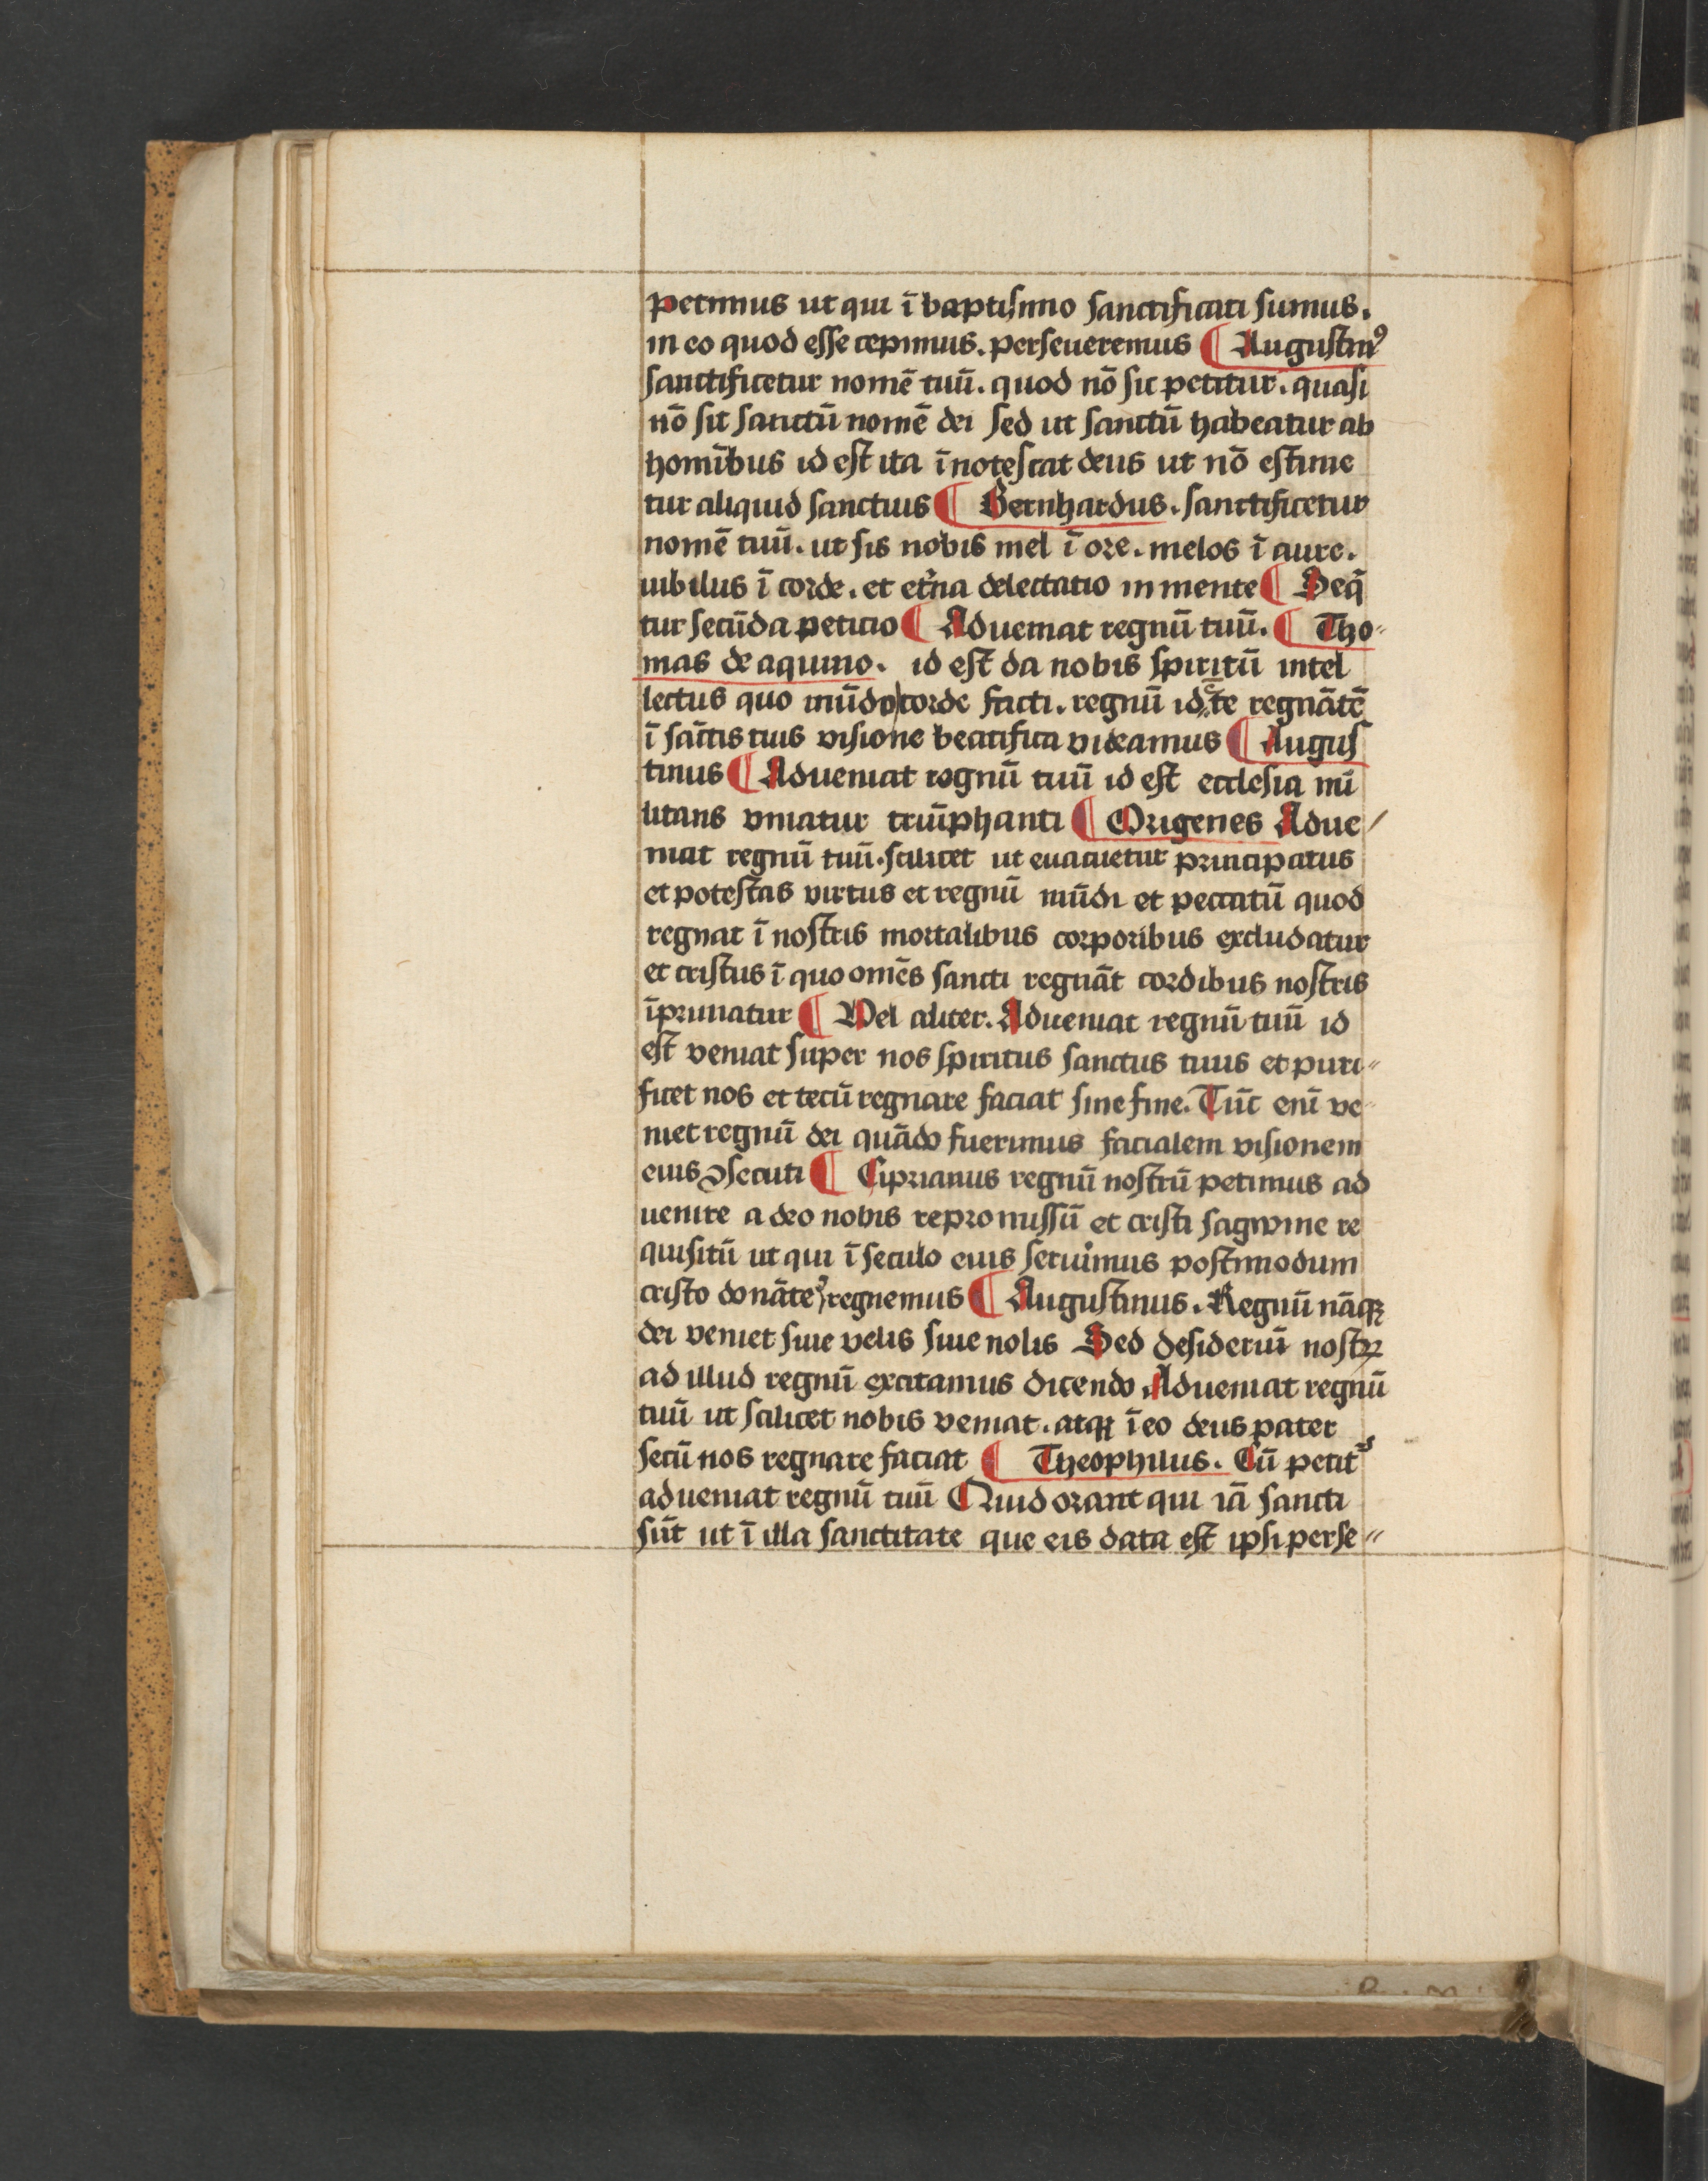 petimus ut qui ī baptiſmo ſanctificati ſumus.
in eo quod eſſe cepimus. perſeueremus ¶ Auguſtinꝰ
ſanctificetur nomē tuū. quod nō ſic petitur. quaſi
nō ſit ſanctū nomē dei ſed ut ſanctū habeatur ab
homībus id eſt ita īnoteſcat deus ut nō eſtime
tur aliquid ſanctius ¶ Bernhardus. ſanctificetur
nomē tuū. ut ſis nobis mel ī ore. melos ī aure.
iubilus ī corde. et et̄na delectatio in mente ¶ Seq̄
tur ſecūda peticio ¶ Adueniat regnū tuū. ¶ Tho-
mas de aquino. id eſt da nobis ſpiritū intel
lectus quo mūdo corde facti. regnū id ē te regnātē
ī sāctis tuis viſione beatifica videamus ¶ Auguſ
tinus ¶ Adueniat regnū tuū id eſt eccleſia mi
litans vniatur triūphanti ¶ Origenes Adue/
niat regnū tuū. ſcilicet ut euacuetur principatus
et poteſtas virtus et regnū mūdi et peccatū quod
regnat ī noſtris mortalibus corporibus excludatur
et criſtus ī quo omēs ſancti regnāt cordibus noſtris
īprimatur ¶ Vel aliter. Adueniat regnū tuū id
eſt veniat ſuper nos ſpiritus ſanctus tuus et puri-
ficet nos et tecū regnare faciat ſine fine. Tūc enī ve-
niet regnū dei quādo fuerimus facialem viſionem
eius ꝯſecuti ¶ Ciprianus regnū noſtrū petimus ad
uenire a deo nobis repromiſſū et criſti ſagwine re
quiſitū ut qui ī ſeculo eius ſeruimus poſtmodum
criſto donāte regnemus ¶ Auguſtinus. Regnū nāqꝫ
dei veniet ſiue velis ſiue nolis Sed deſideriū noſtꝝ
ad illud regnū excitamus dicendo Adueniat regnū
tuū ut ſcilicet nobis veniat. atqꝫ ī eo deus pater
ſecū nos regnare faciat ¶ Theophilus. Cū petit᷑
adueniat regnū tuū Quid orant qui iā ſancti
ſūt ut ī illa ſanctitate que eis data eſt ipſi perſe-